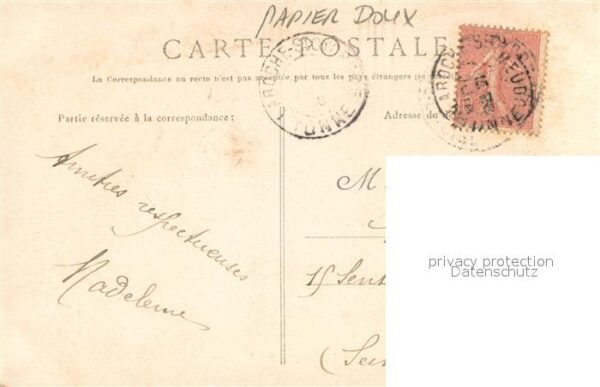 PAPIER DOUX
CARTE POSTALE
La Correspondance au recto n'est pas acceptée par tous les pays étrangers (se
Partie réservée à la correspondance:
Adresse du
LAROCHE-S
YONNE
LAROCHE-S
YONNE
Amitiés
respectueuses
Madeleine
M.
15
(Sei
privacy protection
Datenschutz